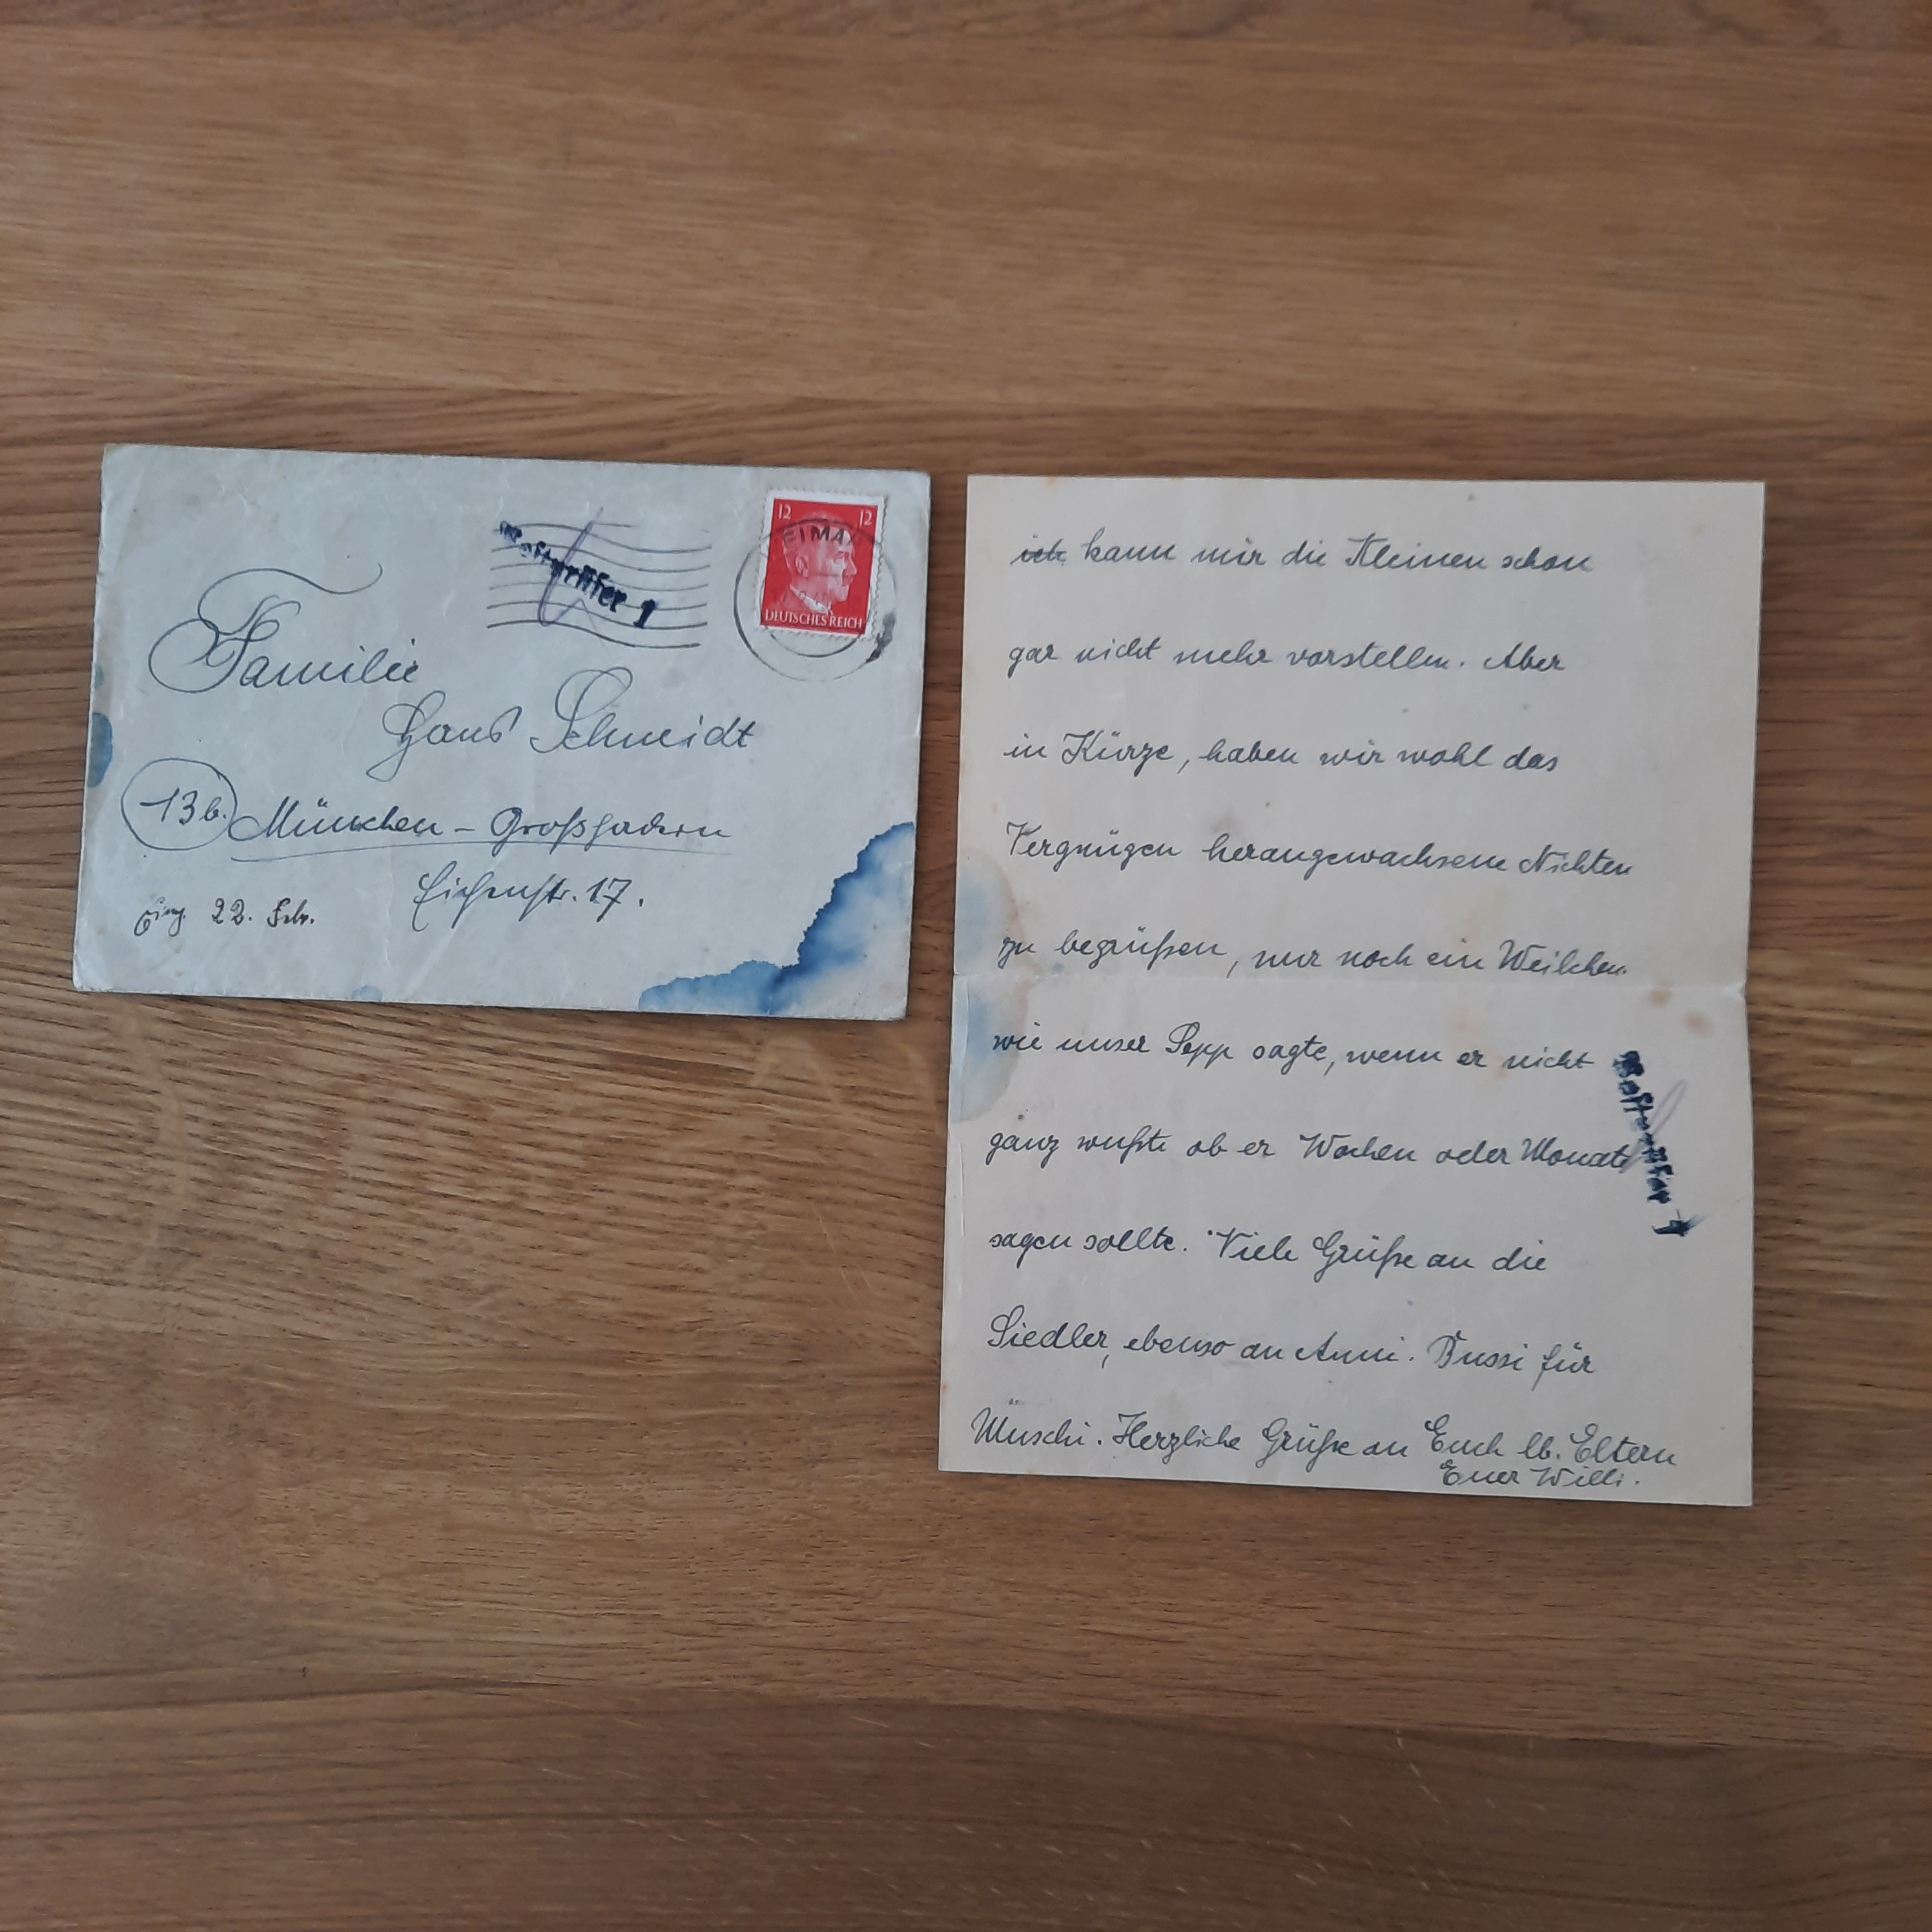 12 12
EIMAR
DEUTSCHES REICH
Familie
Hans Schmidt
13b. München - Großhadern
Eichenstr. 17.
Eing. 22. Feb.
ich kann mir die Kleinen schon
gar nicht mehr vorstellen. Aber
in Kürze, haben wir wohl das
Vergnügen herangewachsene Nichten
zu begrüßen, nur noch ein Weilchen
wie unser Sepp sagte, wenn er nicht
ganz wußte ob er Wochen oder Monate
sagen sollte. Viele Grüße an die
Siedler, ebenso an Anni. Bussi für
Muschi. Herzliche Grüße an Euch lb. Eltern
Euer Willi.